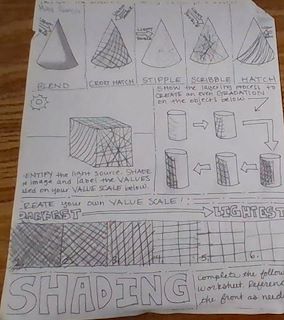 BLEND
CROSS HATCH
STIPPLE
SCRIBBLE
HATCH
SHOW the layering process to
CREATE an even GRADATION
on the objects below
IDENTIFY the light source. SHADE
image and label the VALUES
on your VALUE SCALE below.
CREATE your own VALUE SCALE!
DARKEST
LIGHTEST
2.
3.
4.
5.
6.
SHADING
Complete the
worksheet
the front as